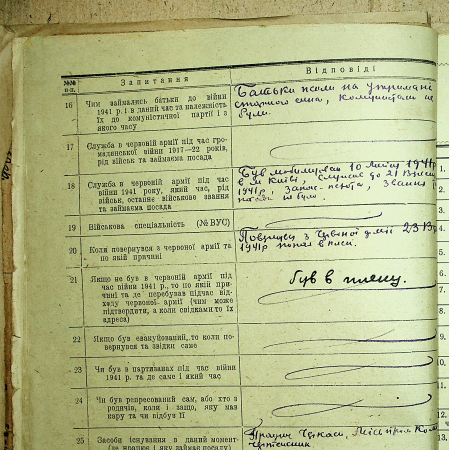 №№ п.п.
Запитання
Відповіді
16
Чим займались батьки до війни
1941 р. і в даний час та належність
їх до комуністичної партії і з
якого часу
Батьки жили на утриманні
старшого сина, комуністами не
були.
17
Служба в червоній армії під час гро-
мадянської війни 1917—22 років,
рід військ та займаєма посада
18
Служба в червоній армії під час
війни 1941 року, який час, рід
військ, останнє військове звання
та займаєма посада
Був мобілізован 10 липня 1941р
в м. Київі, служив до 21
1941р.,
19
Військова спеціяльність (№ ВУС)
20
Коли повернувся з червоної армії та
по якій причині
з Червоної армії 23
1941р попав в плен.
21
Якщо не був в червоній армії під
час війни 1941 р., то по якій при-
чині та де перебував підчас від-
ходу червоної армії (чим може
підтвердити, а коли свідками то їх
адреса)
був в плену.
22
Якщо був евакуйований, то коли по-
вернувся та звідки саме
23
Чи був в партизанах під час війни
1941 р. та де саме і який час
24
Чи був репресований сам, або хто з
родичів, коли і защо, яку мав
кару та чи відбув її
25
Засоби існування в даний момент
(де працює і яку займає посаду)
Працюю Черкаси,
1.
2.
3.
4.
5.
6.
7.
8.
9.
10.
11.
12.
13.